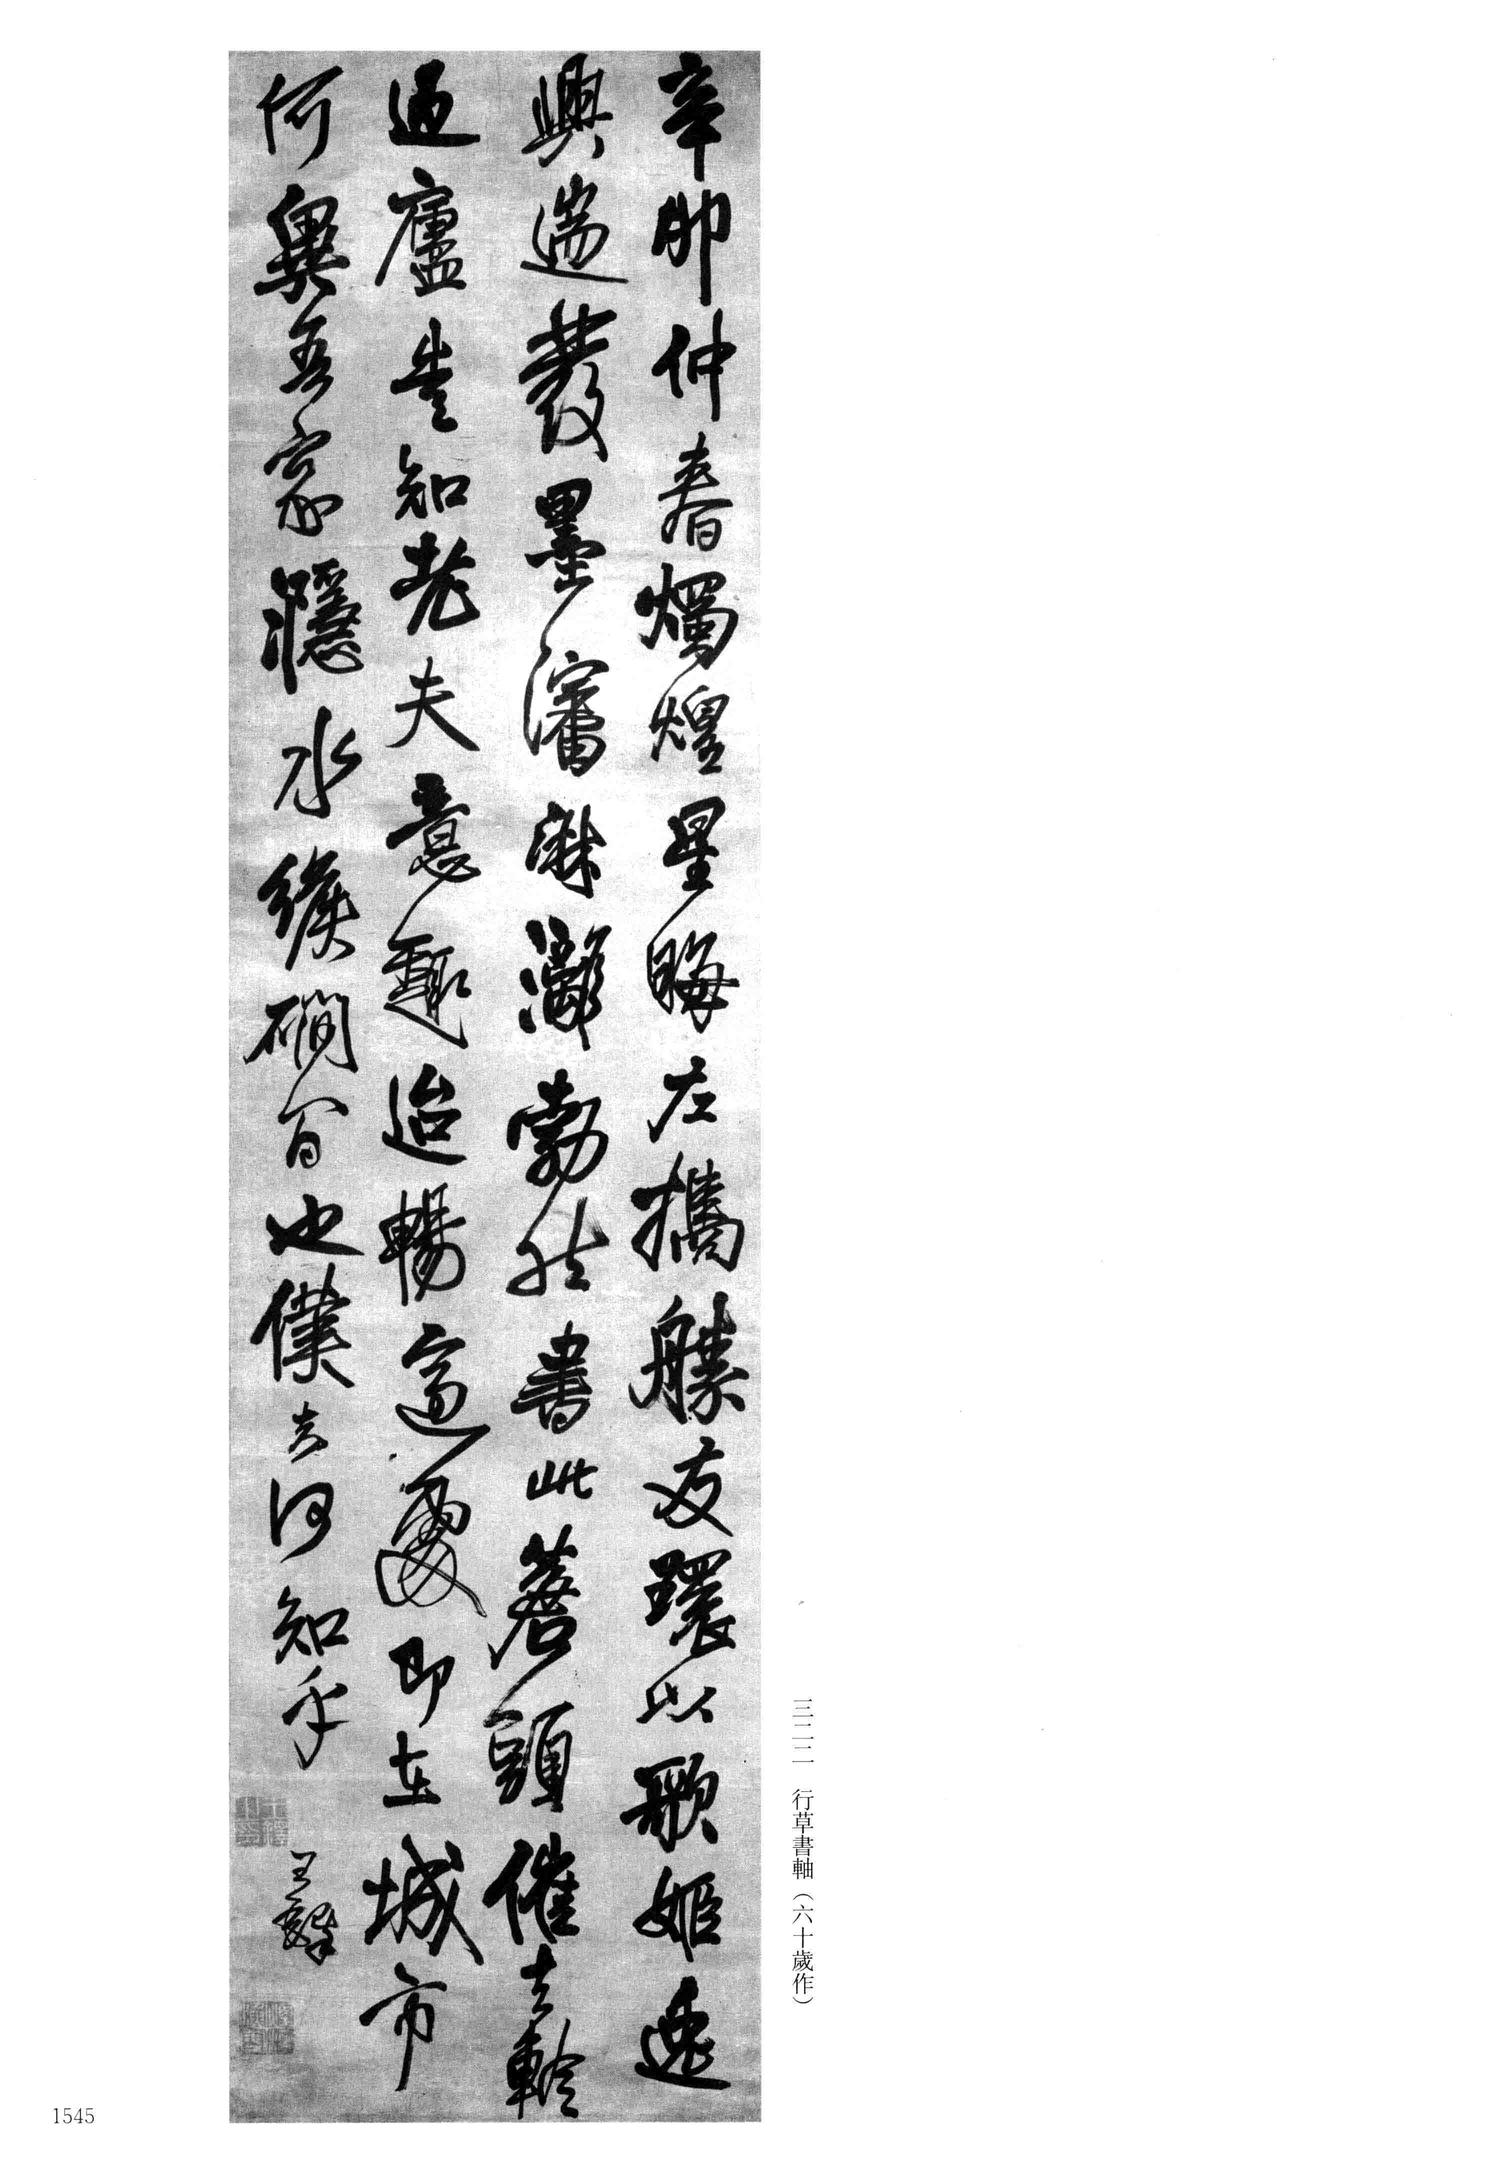 辛卯仲春燭煌星晦左攜觴友環以歌姬逸
興遄發墨瀋淋灕勃然書此蒼頭催去輪
過廬告知老夫意趣迨暢適處即在城市
何異吾家濦水緱磵間也僕去何知乎
王鐸
三二二 行草書軸（六十歲作）
1545